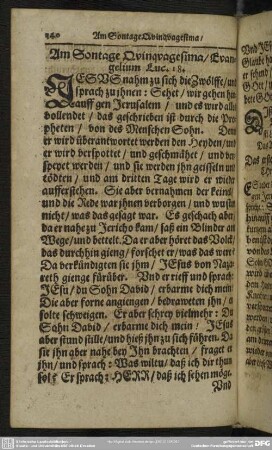 340 Am Sontage Qvinqvagesima/
Am Sontage Qvinqvagesima/ Evan-
gelium Luc. 18.
JESUS nahm zu sich die Zwölffe/ und
sprach zu ihnen: Sehet/ wir gehen hin-
auff gen Jerusalem/ und es wird alles
vollendet/ das geschrieben ist durch die Pro-
pheten/ von des Menschen Sohn. Denn
er wird überantwortet werden den Heyden/ und
er wird verspottet/ und geschmähet/ und ver-
speyet werden/ und sie werden ihn geisseln und
tödten/ und am dritten Tage wird er wieder
aufferstehen. Sie aber vernahmen der keins/
und die Rede war jhnen verborgen/ und wusten
nicht/ was das gesagt war. Es geschach aber/
da er nahe zu Jericho kam/ saß ein Blinder am
Wege/ und bettelt. Da er aber höret das Volck/
das durchhin gieng/ forschet er/ was das wer.
Da verkündigten sie ihm/ JEsus von Naza-
reth gienge fürüber. Und er rieff und sprach:
JEsu/ du Sohn David/ erbarme dich mein.
Die aber forne angiengen/ bedraweten ihn/ er
solte schweigen. Er aber schrey vielmehr: Du
Sohn David/ erbarme dich mein! JEsus
aber stund stille/ und hieß ihn zu sich führen. Da
sie ihn aber nahe bey Ihn brachten/ fraget er
ihn/ und sprach: Was wiltu/ daß ich dir thun
sol? Er sprach: HERR/ daß ich sehen möge.
Und